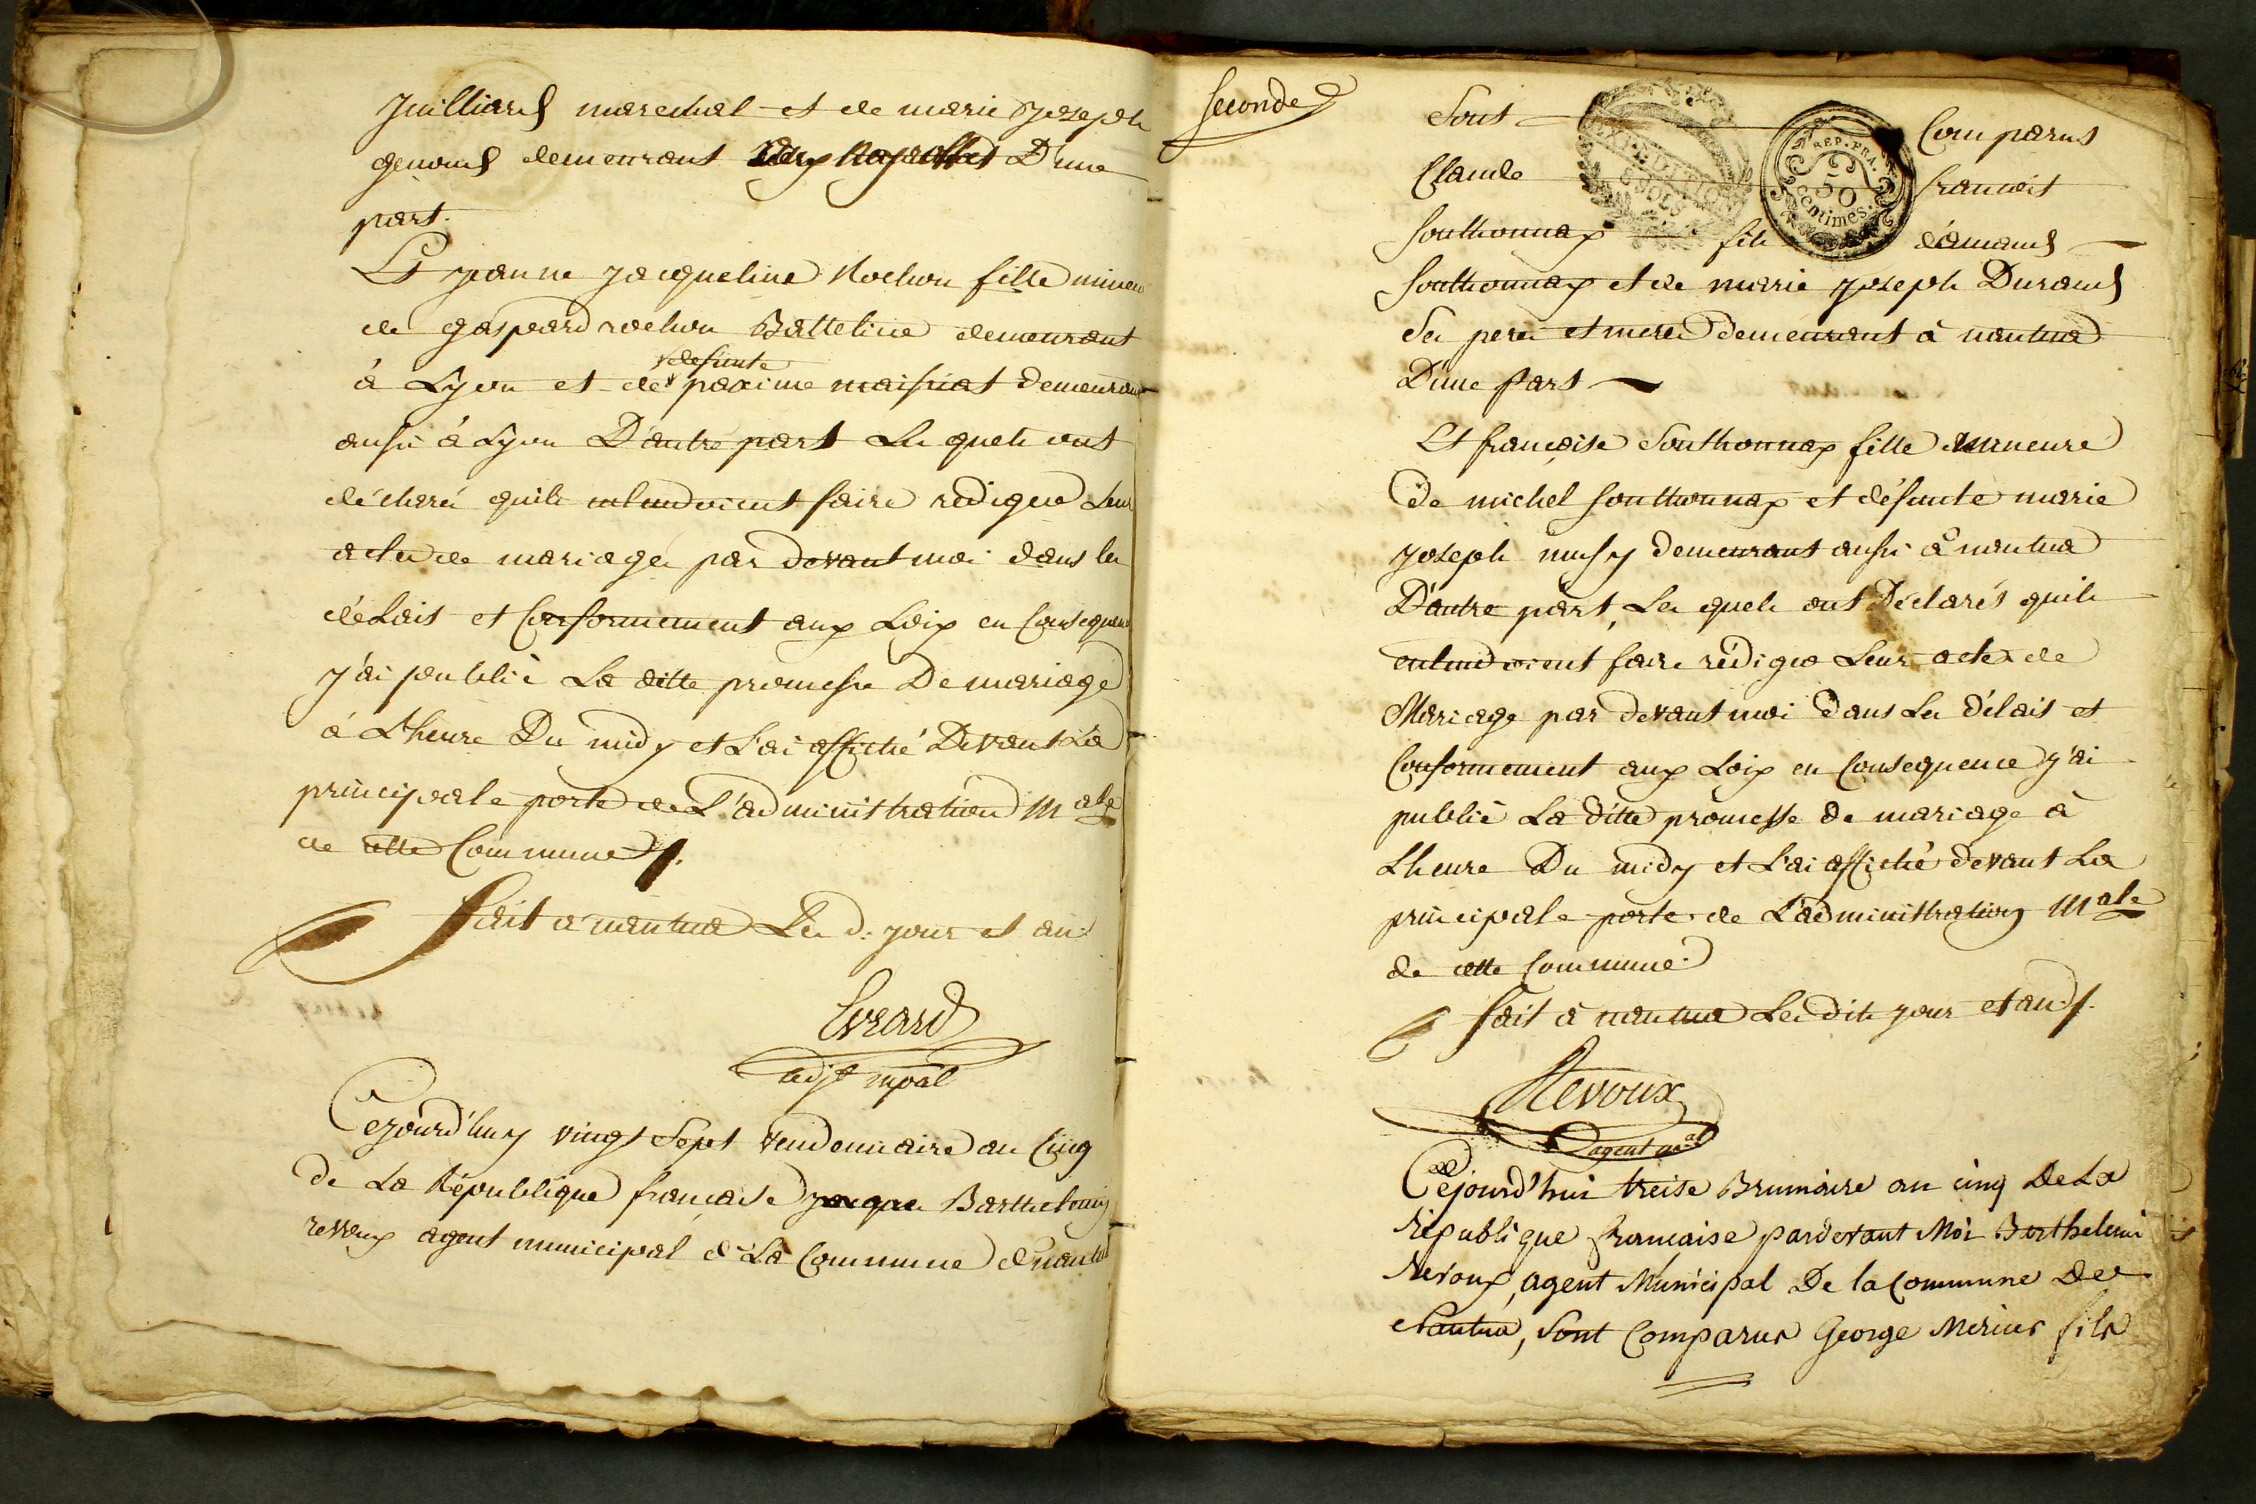 Juilliard marechal et de marie Joseph
genoud demeurant D'une
part.
Et Jeanne Jacqueline Rochon fille mineur
de gaspard rochon Batteline demeurant
à Lyon et de defunte paxime maissiat demeurant
aussi à Lyon D'autre part Les quels ont
déclaré quils entendoient faire rediger Leur
acte de mariage par devant moi dans les
délais et Conformement aux Loix en Consequence
J'ai publié La ditte promesse De mariage
à L'heure Du midy et L'ai affiché Devant La
principale porte de L'administration Male
de cette Commune /.
Fait à nantua Les d. jour et an
Evrard
adjt mpal
Cejourd'huy vingt Sept Vendemiaire an Cinq
de La République francaise Barthelemy
revoux agent municipal de La Commune de nantua
Seconde
Sont Comparus
Claude francois
Southonnax fils d'amand
Southonnax et de marie Joseph Durand
Ses pere et mere demeurant à nantua
D'une part
Et françoise Southonnax fille mineure
De michel Southonnax et défunte marie
Joseph mussy demeurant aussi à nantua
D'autre part, Les quels ont Déclarés quils
entendoient faire rédiger Leur acte de
Mariage par devant moi Dans Les délais et
Conformement aux Loix en Consequence J'ai
publié La ditte promesse de mariage à
Lheure Du midy et L'ai affiché devant La
principale porte de L'administration Male
de cette Commune
Fait à nantua Les dits jour et an /.
Revoux
agent mal
Cejourd'hui treise Brumaire an cinq de La
république française pardevant Moi Barthelemi
Revoux, agent Municipal De la Commune de
Nantua, Sont Comparus George Merius fils
REP. FRA.
50
Centimes.